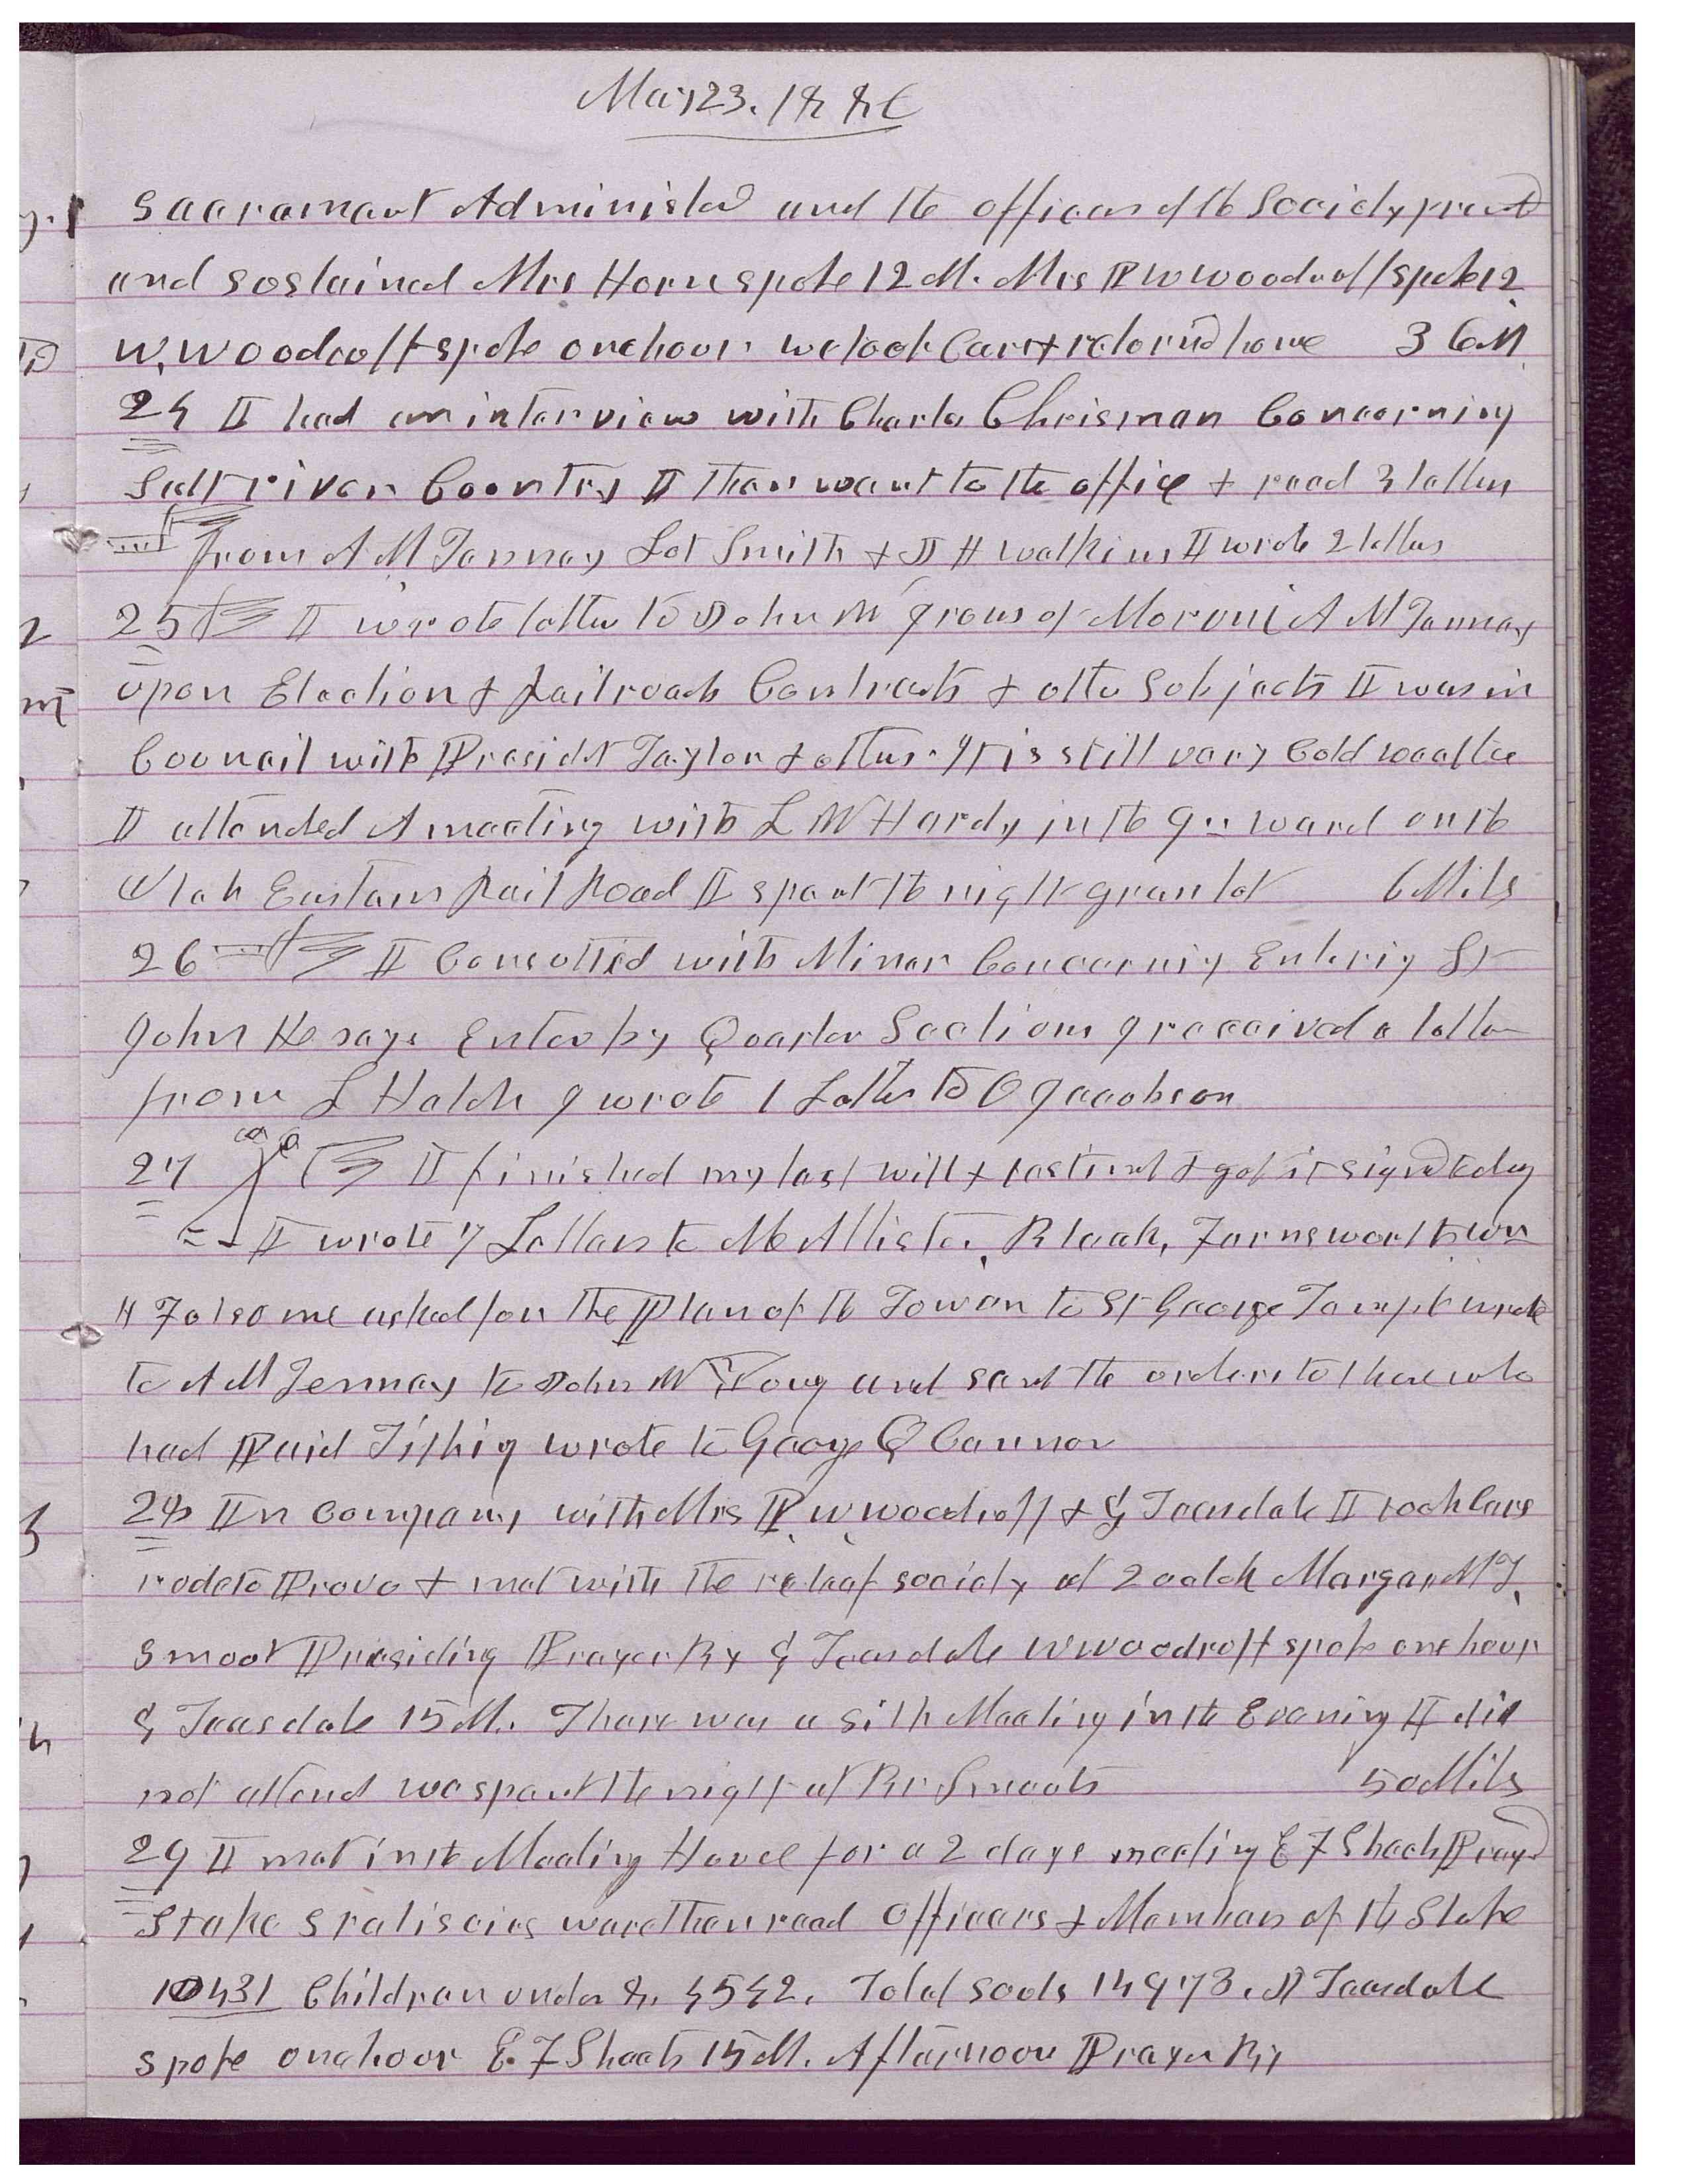 May 23. 1880
Sacrament Administerd and the officers of the Society presentd
and sostained Mrs Horn spoke 12 M. Mrs P W Woodruff spoke 12
W. Woodruff spoke one hour we took Cars & retornd home 36 M
24 I had an interview with Charles Chrisman Concerning
Salt river Country I then went to the office & read 3 letters
from A M Tenney Lot Smith & D H Watkins I wrote 2 letters
25 I wrote letter to John W of Moroni A M Tenney
upon Election & Railroads Contracts & other Subjects I was in
Council with Presidet Taylor & others. It is still very Cold weather
I attended A meeting with L W Hardy in the 9.. ward on the
Utah Eastern Rail Road I spent the night 6 Miles
26 I Consulted with Miner Concerning Entering St
John He says Enter by Quarter Sections I received a letter
from L Hatch I wrote 1 Letter to O Jacobson
27 I finished my last will & testimet & got it signed today
I wrote 7 Letters to McAllister, Black, Farnsworth wm
H Folsome asked for the Plan of the Tower to St George Temple wrote
to A M Tenney to John W Young and sent the orders to those who
had Paid Tithing wrote to George Q Cannon
28 In company with Mrs P. W. Woodruff & G Teasdale I took Cars
rode to Provo & met with the releaf society at 2 oclok Margaret T.
Smoot Presiding Prayer By G Teasdale W Woodruff spoke one hour
G Teasdale 15 M. There was a silk Meeting in the Evening I did
not attend we spent the night at Br Smoots 50 Miles
29 I met in the Meeting House for a 2 days meeting E F Sheets Prayed
Stake statiscics were then read Officers & Members of the Stake
10431 Children under 8. 4542. Total souls 14973. Teasdale
spoke one hour E. F Sheets 15 M. Afternoon Prayer By